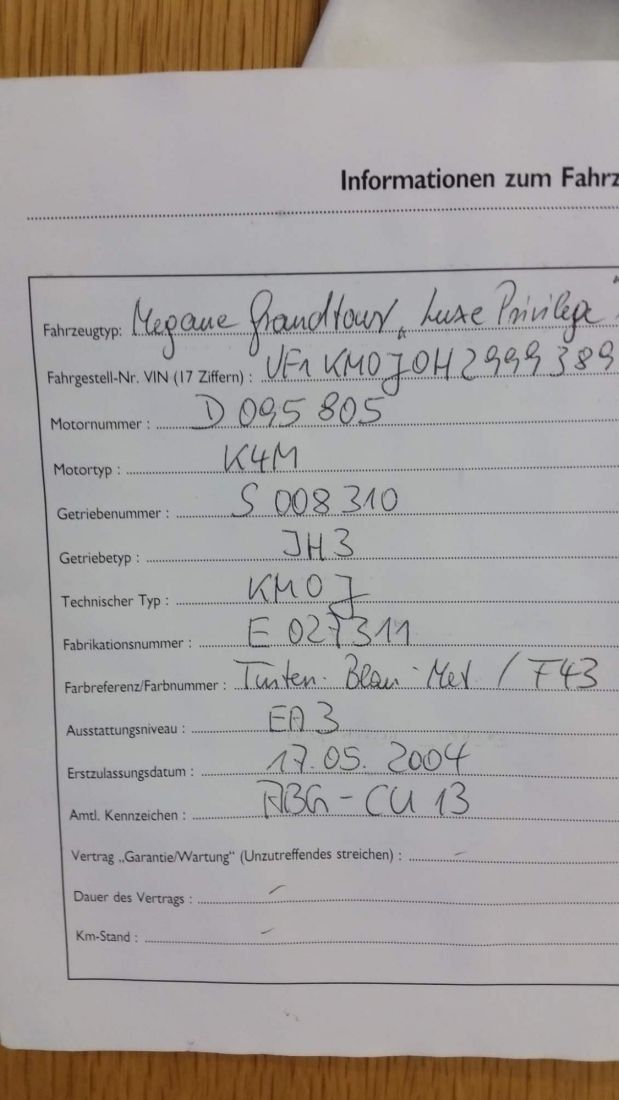 Informationen zum Fahrz
Fahrzeugtyp: Megane Grandtour „Luxe Privilege"
Fahrgestell-Nr. VIN (17 Ziffern) : VF1KM0J0H2999389
Motornummer : D095805
Motortyp : K4M
Getriebenummer : S 008310
Getriebetyp : JH3
Technischer Typ : KM0J
Fabrikationsnummer : E027311
Farbreferenz/Farbnummer : Tinten-Blau-Met / F43
Ausstattungsniveau : EA3
Erstzulassungsdatum : 17.05.2004
Amtl. Kennzeichen : ABG-CU 13
Vertrag „Garantie/Wartung" (Unzutreffendes streichen) : –
Dauer des Vertrags : –
Km-Stand : –